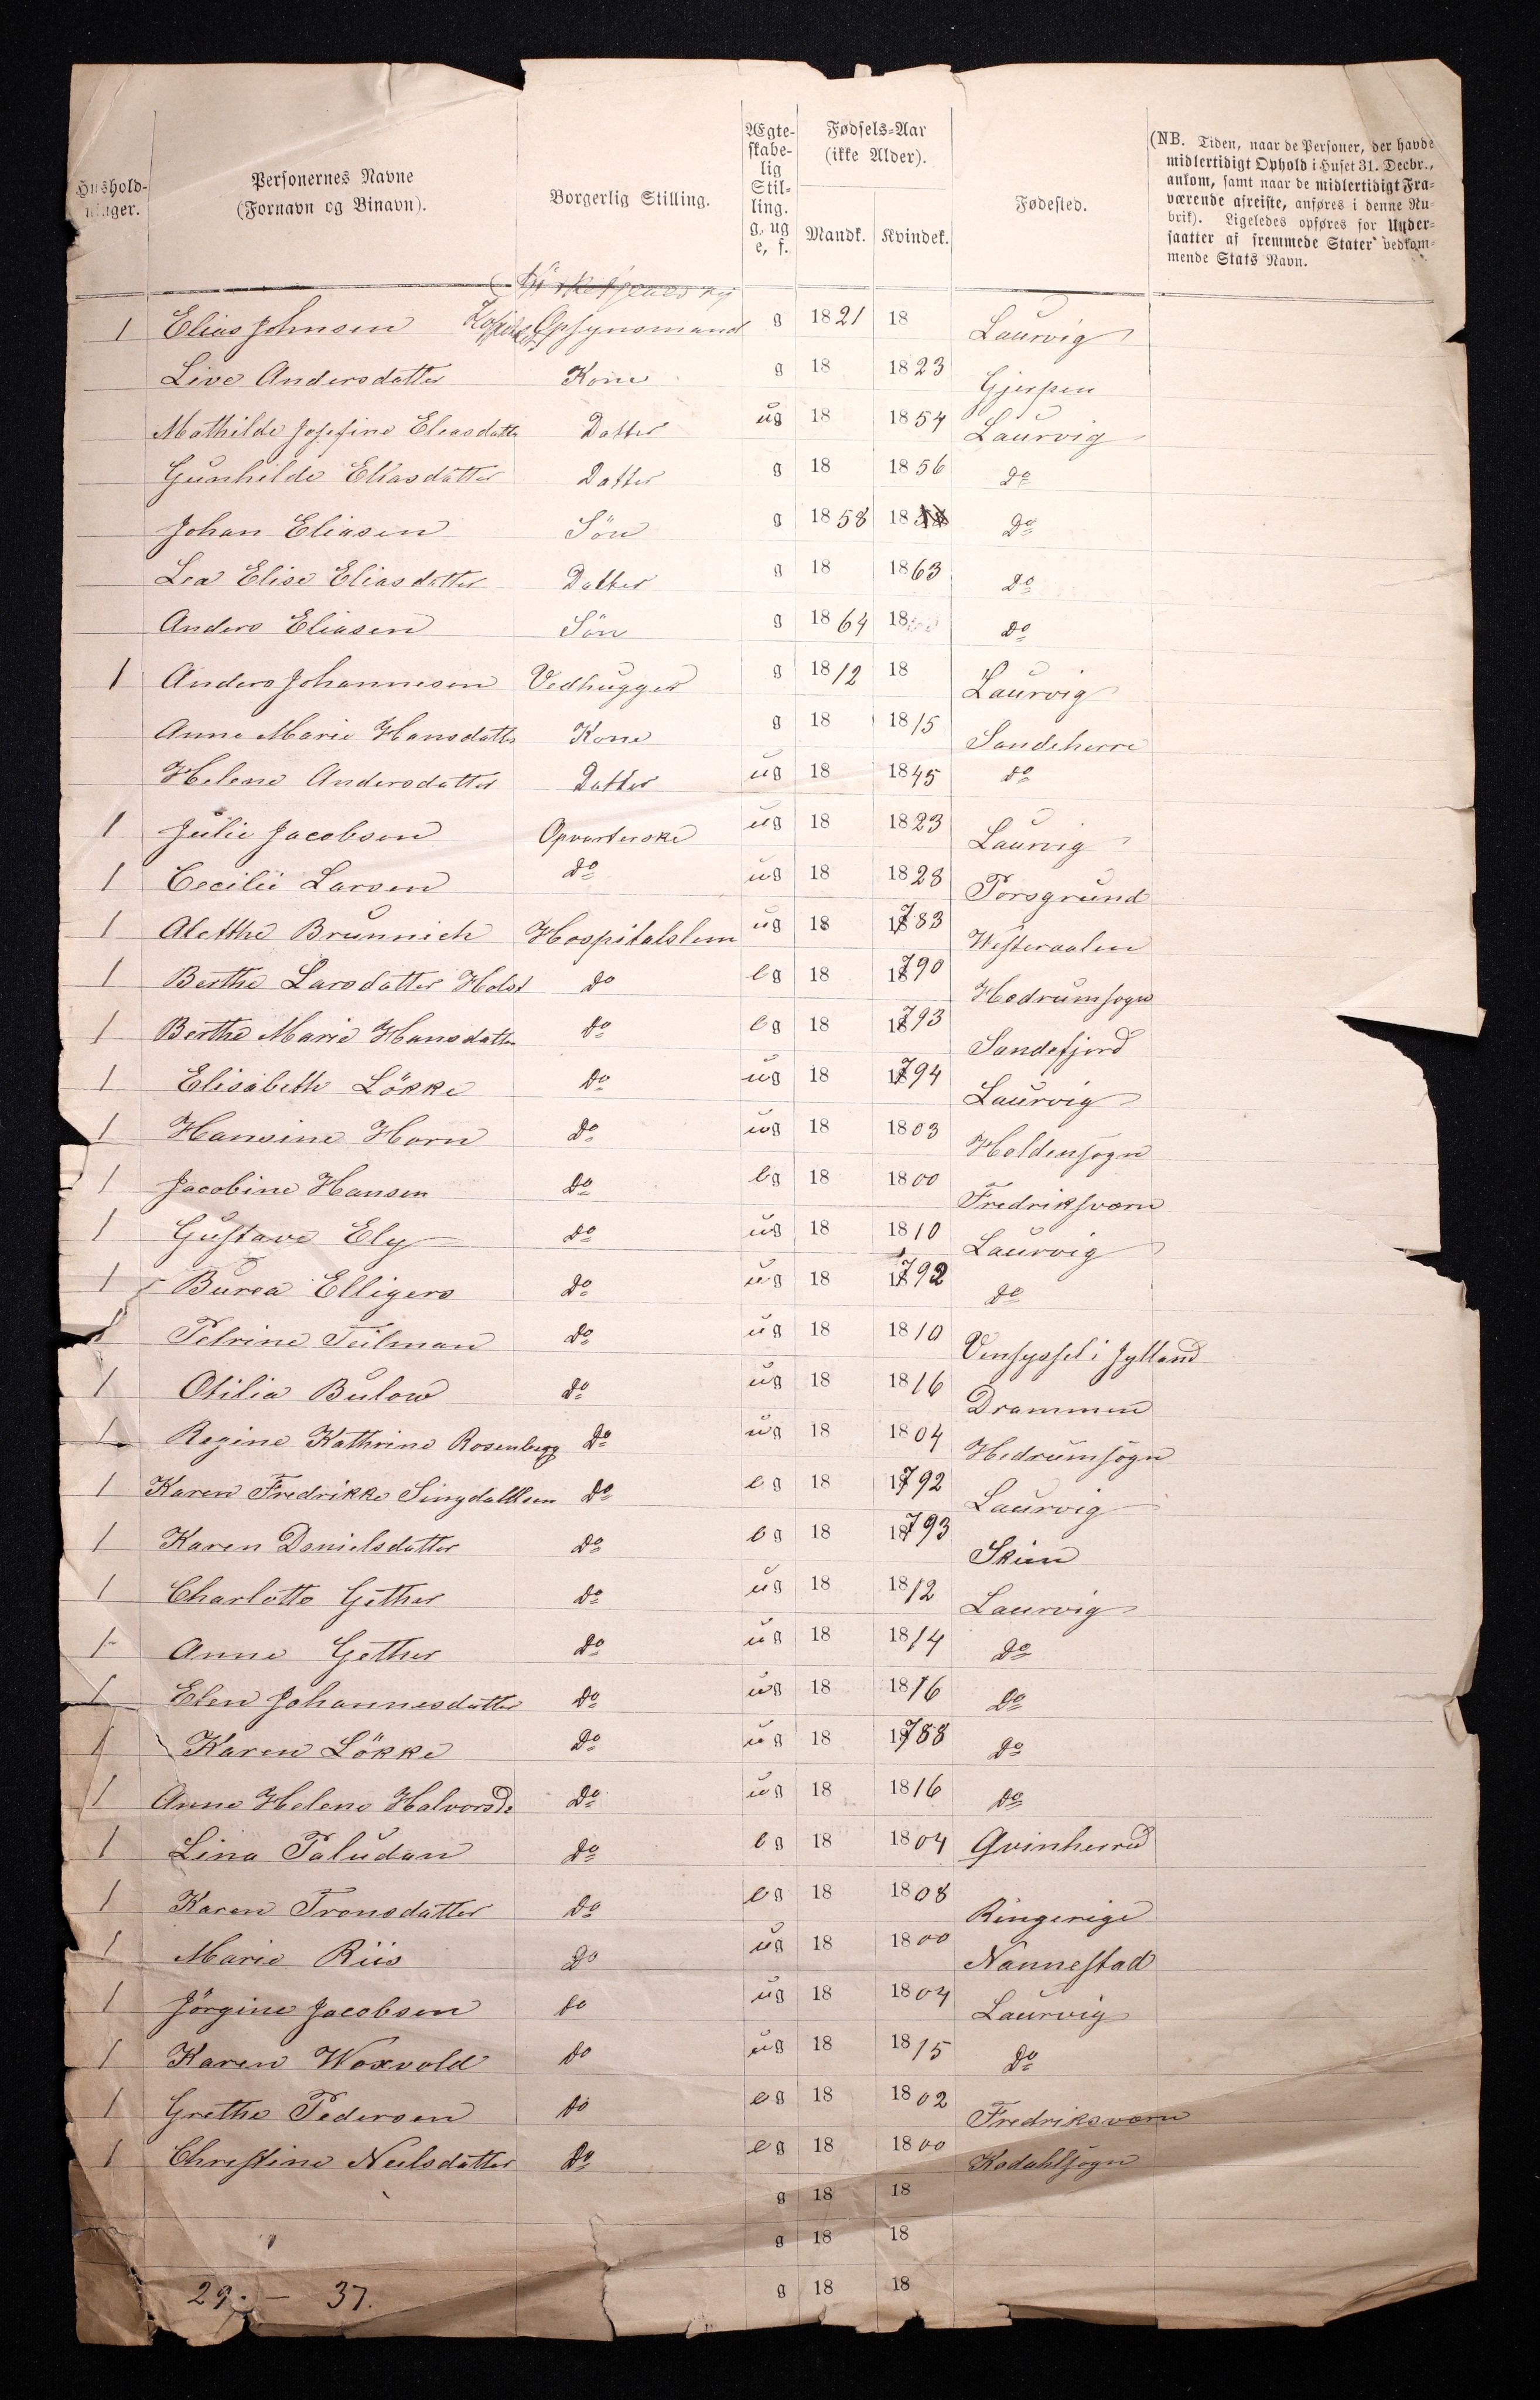 Hushold-
ninger.
Personernes Navne
(Fornavn og Binavn).
Borgerlig Stilling.
Ægte-
skabe-
lig
Stil-
ling.
g, ug
e, f.
Fødsels-Aar
(ikke Alder).
Mandk. Kvindek.
Fødested.
(NB. Tiden, naar de Personer, der havde
midlertidigt Ophold i Huset 31. Decbr.,
ankom, samt naar de midlertidigt Fra-
værende afreiste, anføres i denne Ru-
brik). Ligeledes opføres for Under-
saatter af fremmede Stater vedkom-
mende Stats Navn.
1 Elias Johnsen Opsynsmand g 1821 18 Laurvig
Live Andersdatter Kone g 18 1823 Gjerpen
Mathilde Josefine Eleasdattr Datter ug 18 1854 Laurvig
Gunhilde Eliasdatter Datter g 18 1856 do
Johan Eliasen Sön g 1858 18 do
Lea Elise Eliasdatter Datter g 18 1863 do
Anders Eliasen Sön g 1864 18 do
1 Anders Johannesen Vedhugger g 1812 18 Laurvig
Anne Marie Hansdattr Kone g 18 1815 Sandeherre
Helene Andersdatter Datter ug 18 1845 do
1 Julie Jacobsen Opvarterske ug 18 1823 Laurvig
1 Cecilie Larsen do ug 18 1828 Porsgrund
1 Alethe Brunnich Hospitalslem ug 18 1783 Westeraalen
1 Berthe Larsdatter Holst do eg 18 1790 Hedrumsogn
1 Berthe Marie Hansdatter do eg 18 1793 Sandefjord
1 Elisabeth Lökke do ug 18 1794 Laurvig
1 Hansine Horn do ug 18 1803 Holdensogn
1 Jacobine Hansen do eg 18 1800 Fredriksværn
1 Gustava Ely do ug 18 1810 Laurvig
1 Burea Elligers do ug 18 1792 do
1 Petrine Teilman do ug 18 1810 Vensyssel i Jylland
1 Otilia Bulow do ug 18 1816 Drammen
1 Regine Kathrine Rosenberg do ug 18 1804 Hedrumsogn
1 Karen Fredrikke Singdahlsen do eg 18 1792 Laurvig
1 Karen Danielsdatter do eg 18 1793 Skien
1 Charlotte Gether do ug 18 1812 Laurvig
1 Anne Gether do ug 18 1814 do
1 Elen Johannesdatter do ug 18 1816 do
1 Karen Lökke do ug 18 1788 do
1 Anne Helene Halvorsd. do ug 18 1816 do
1 Lina Paludan do eg 18 1804 Qvinherred
1 Karen Tronsdatter do eg 18 1808 Ringerige
1 Marie Riis do ug 18 1800 Nannestad
1 Jörgine Jacobsen do ug 18 1804 Laurvig
1 Karen Woxvold do ug 18 1815 do
1 Grethe Pedersen do eg 18 1802 Fredriksværn
1 Christine Neilsdatter do eg 18 1800 Kodahlsogn
g 18 18
g 18 18
29. — 37. g 18 18